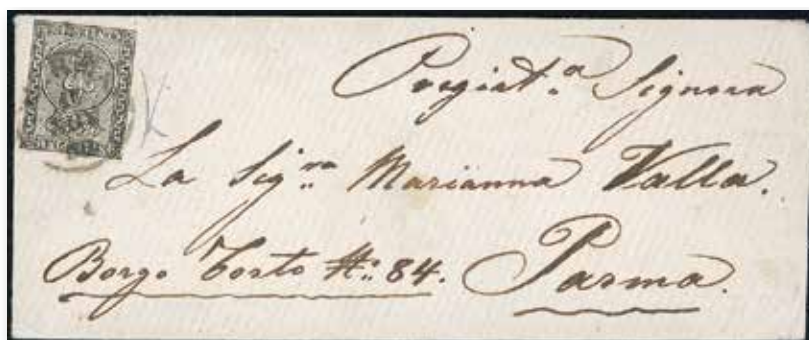 Pregiat.ª Signora
La Sig.ra Marianna Valla.
Borgo Torto N.º 84. Parma.